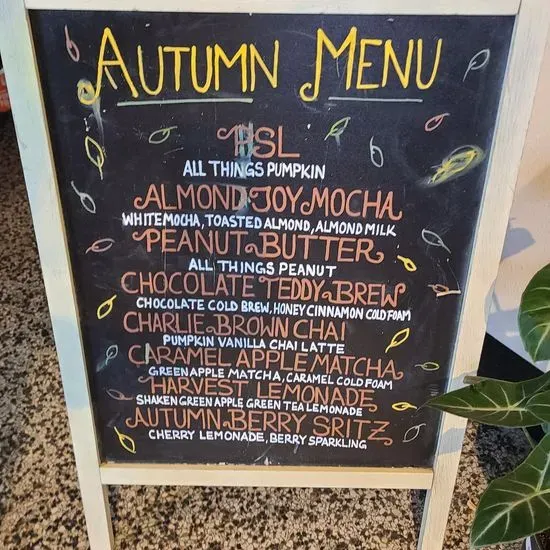 AUTUMN MENU
PSL
ALL THINGS PUMPKIN
ALMOND JOY MOCHA
WHITE MOCHA, TOASTED ALMOND, ALMOND MILK
PEANUT BUTTER
ALL THINGS PEANUT
CHOCOLATE TEDDY BREW
CHOCOLATE COLD BREW, HONEY CINNAMON COLD FOAM
CHARLIE BROWN CHAI
PUMPKIN VANILLA CHAI LATTE
CARAMEL APPLE MATCHA
GREEN APPLE MATCHA, CARAMEL COLD FOAM
HARVEST LEMONADE
SHAKEN GREEN APPLE, GREEN TEA LEMONADE
AUTUMN BERRY SRITZ
CHERRY LEMONADE, BERRY SPARKLING